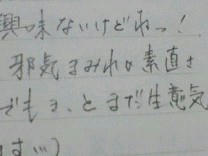 興味ないけどねっ!
邪気まみれな素直さ
でもま、とまだ生意気
ますぃ)